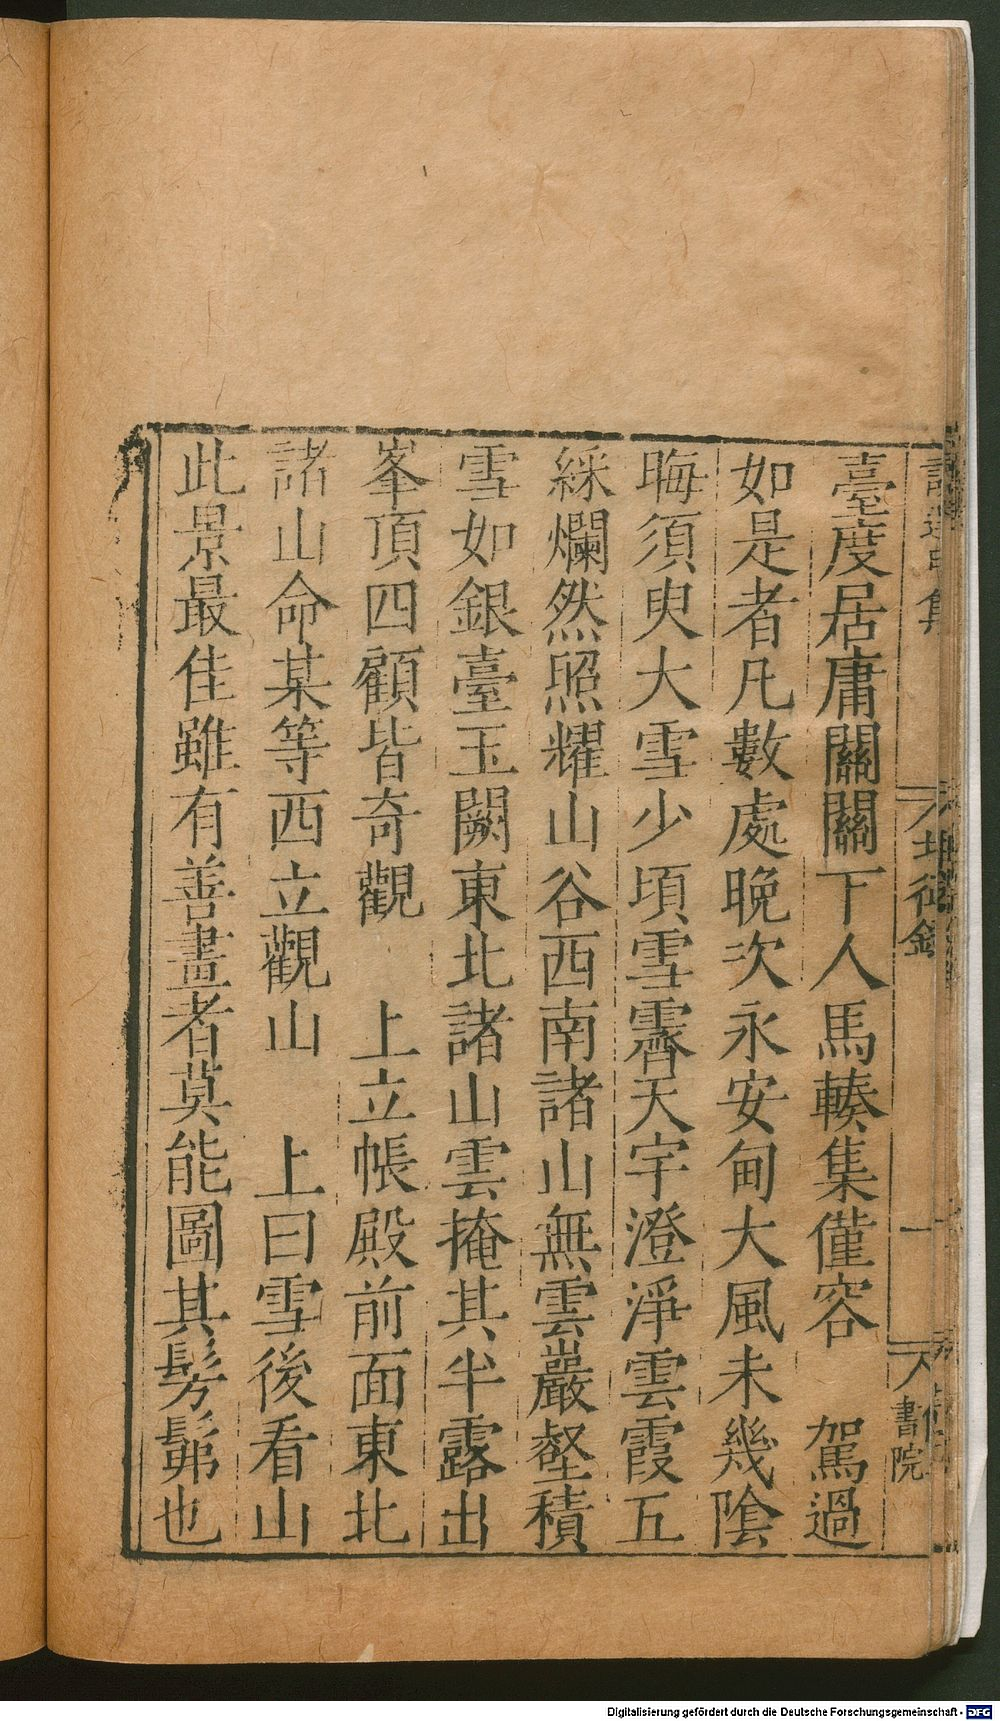 臺度居庸關關下人馬輳集僅容　駕過
如是者凡數處晚次永安甸大風未幾陰
晦須臾大雪少頃雪霽天宇澄淨雲霞五
綵爛然照耀山谷西南諸山無雲巖壑積
雪如銀臺玉闕東北諸山雲掩其半露出
峯頂四顧皆奇觀　上立帳殿前面東北
諸山命某等西立觀山　上曰雪後看山
此景最佳雖有善畫者莫能圖其髣髴也
集
一
書院
Digitalisierung gefördert durch die Deutsche Forschungsgemeinschaft - DFG